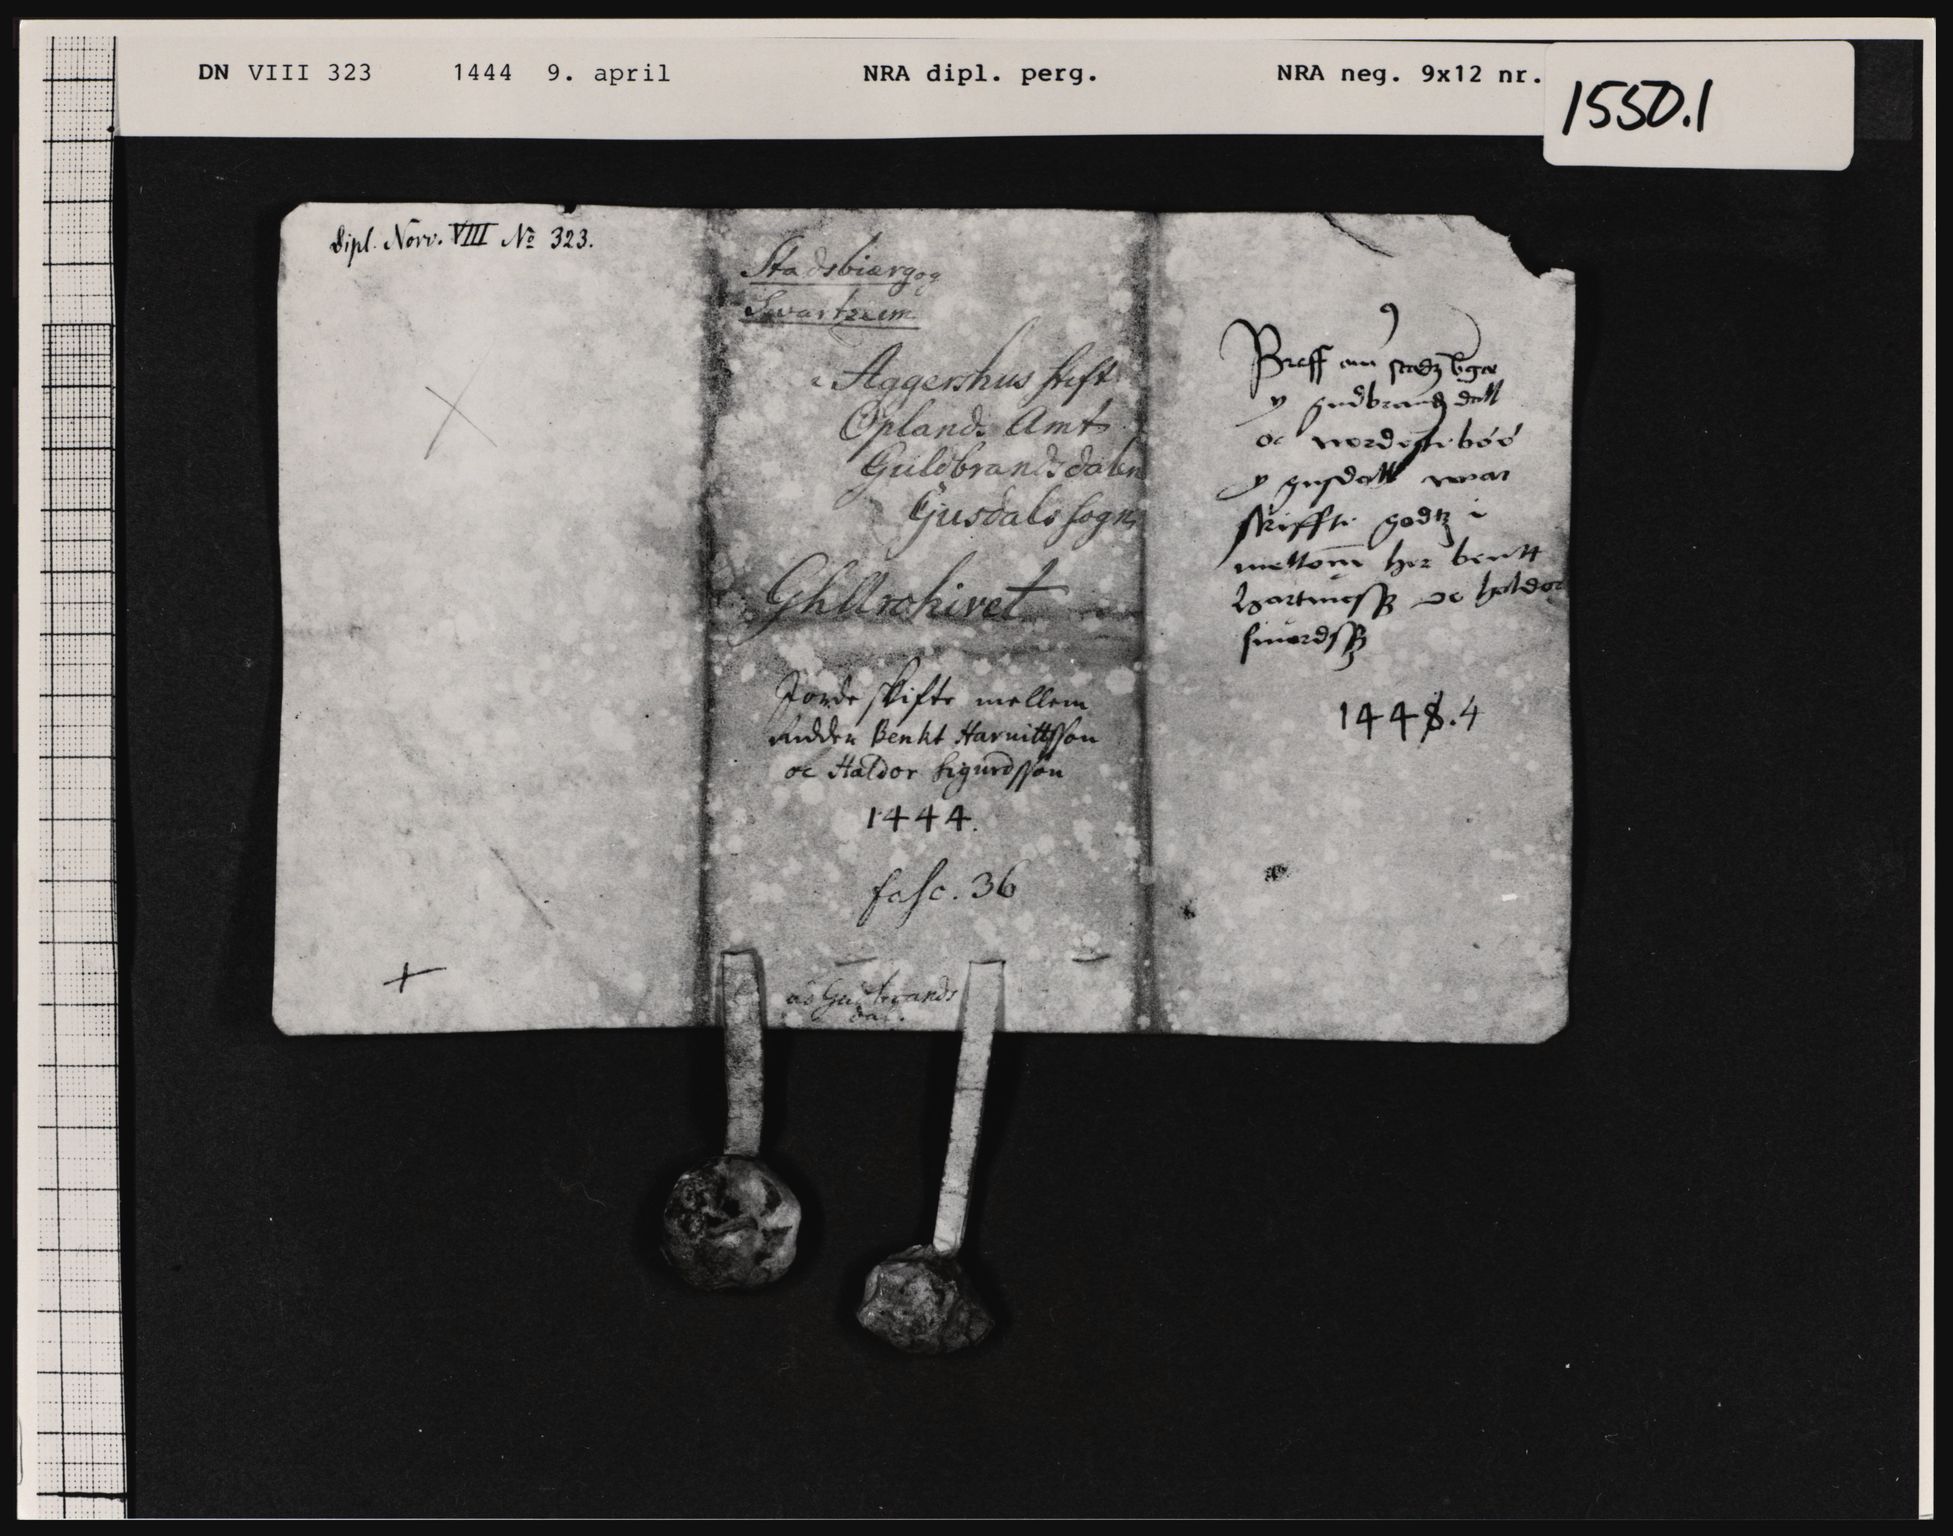 DN VIII 323 1444 9. april NRA dipl. perg. NRA neg. 9x12 nr.
1550.1
Dipl. Norv. VIII No 323.
Stadsbiærg og
Svartzeim
i Aggershus stift
Oplands Amt
Guldbrandsdalen
Gusdals sogn
Gh Archivet
Jorde skifte mellem
Ridder Benkt Harnittsson
oc Haldor Sigurdsson
1444.
fasc. 36
Gudbrands
dal.
Breff om
y gudbrandz dall
oc nordeste böö
y gusdall
skiffte godtz i
mellom her bentt
hartuigss oc haldor
siuerdss
1448.4